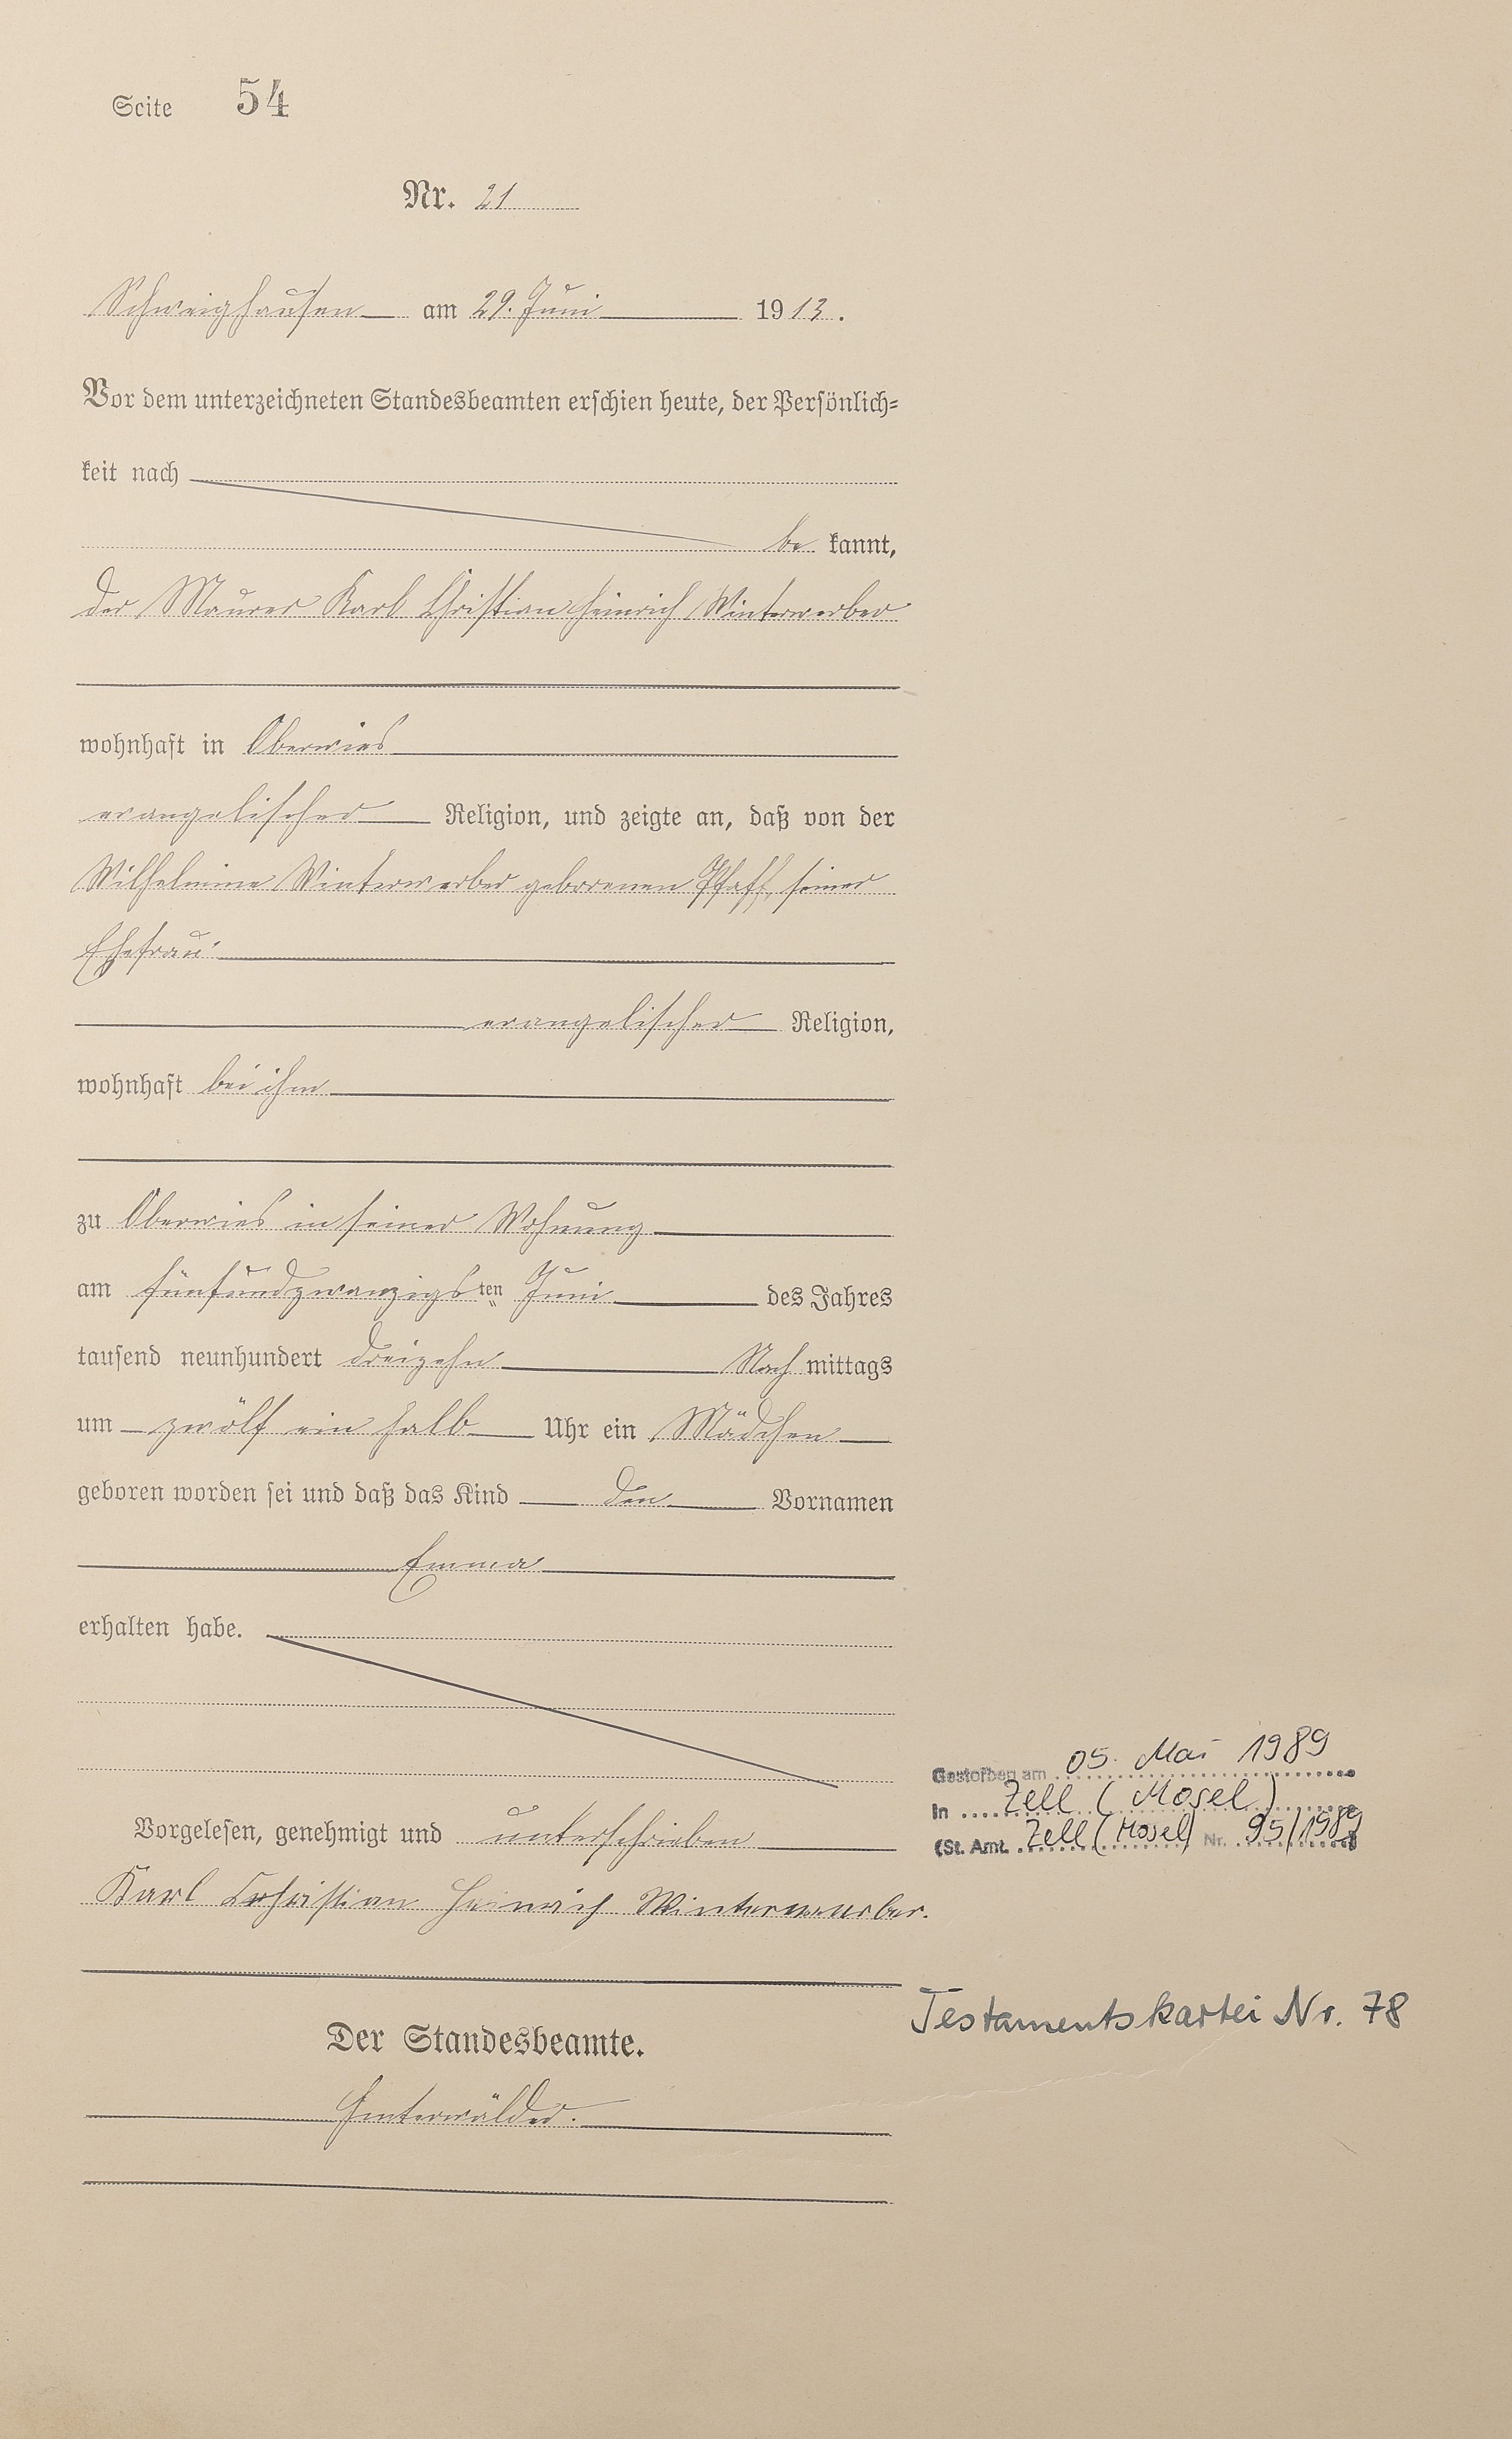 Seite 54
Nr. 21
Schweighausen am 29. Juni 1913.
Vor dem unterzeichneten Standesbeamten erschien heute, der Persönlich-
keit nach
be kannt,
der Maurer Karl Christian Heinrich Winterwerber
wohnhaft in Oberwies
evangelischer Religion, und zeigte an, daß von der
Wilhelmine Winterwerber geborenen Pfaff, seiner
Ehefrau
evangelischer Religion,
wohnhaft bei ihm
zu Oberwies in seiner Wohnung
am fünfundzwanzigsten Juni des Jahres
tausend neunhundert dreizehn Nach mittags
um zwölf ein halb Uhr ein Mädchen
geboren worden sei und daß das Kind den Vornamen
Emma
erhalten habe.
Vorgelesen, genehmigt und unterschrieben
Karl Christian Heinrich Winterwerber.
Der Standesbeamte.
Hinterwälder.
Gestorben am 05. Mai 1989
in Zell (Mosel)
(St. Amt. Zell (Mosel) Nr. 95/1989
Testamentskartei Nr. 78